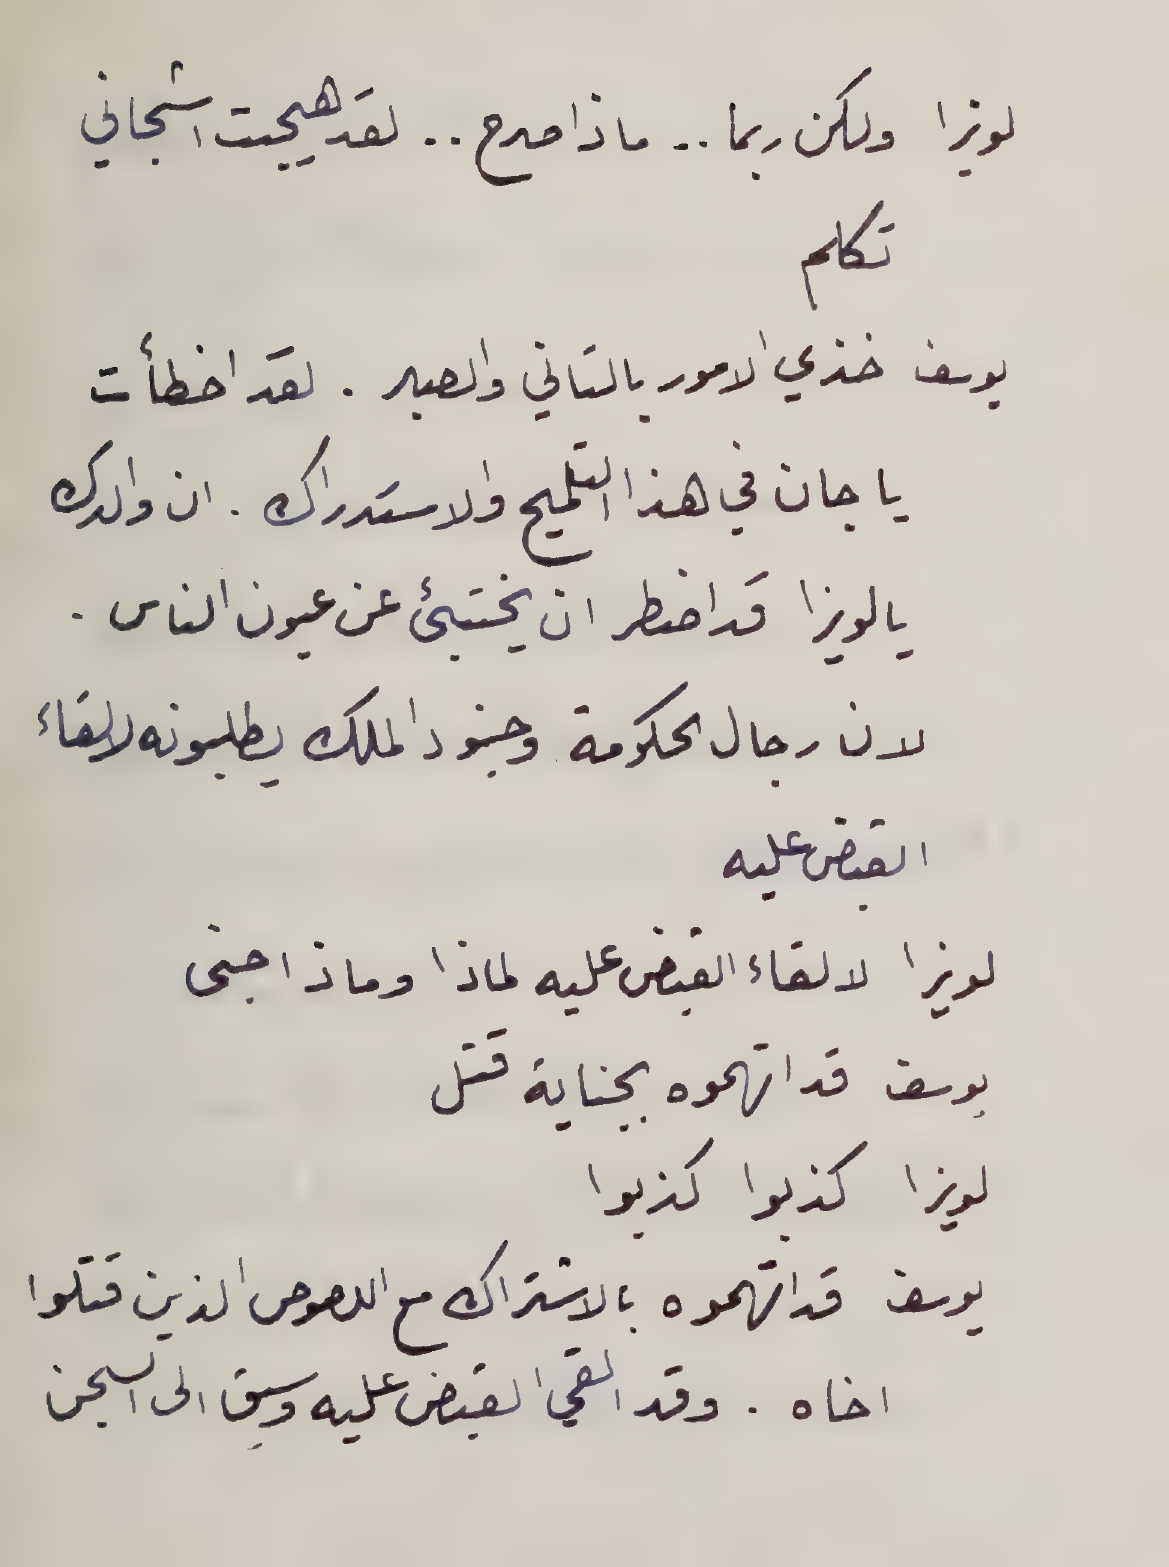 لويزا ولكن ربما .. ماذا صرح .. لقد هيجت اشجاني
تكلم
يوسف خذي الامور بالتاني والصبر . لقد اخطأت
يا جان في هذا التلميح والاستدراك . ان والدك
يا لويزا قد اضطر ان يختبئ عن عيون الناس .
لان رجال الحكومة وجنود الملك يطلبونه لالقاء
القبض عليه
لويزا لالقاء القبض عليه لماذا وماذا جنى
يوسف قد اتهموه بجناية قتل
لويزا كذبوا كذبوا
يوسف قد اتهموه بالاشتراك مع اللصوص الذين قتلوا
اخاه . وقد القي القبض عليه وسيق الى السجن